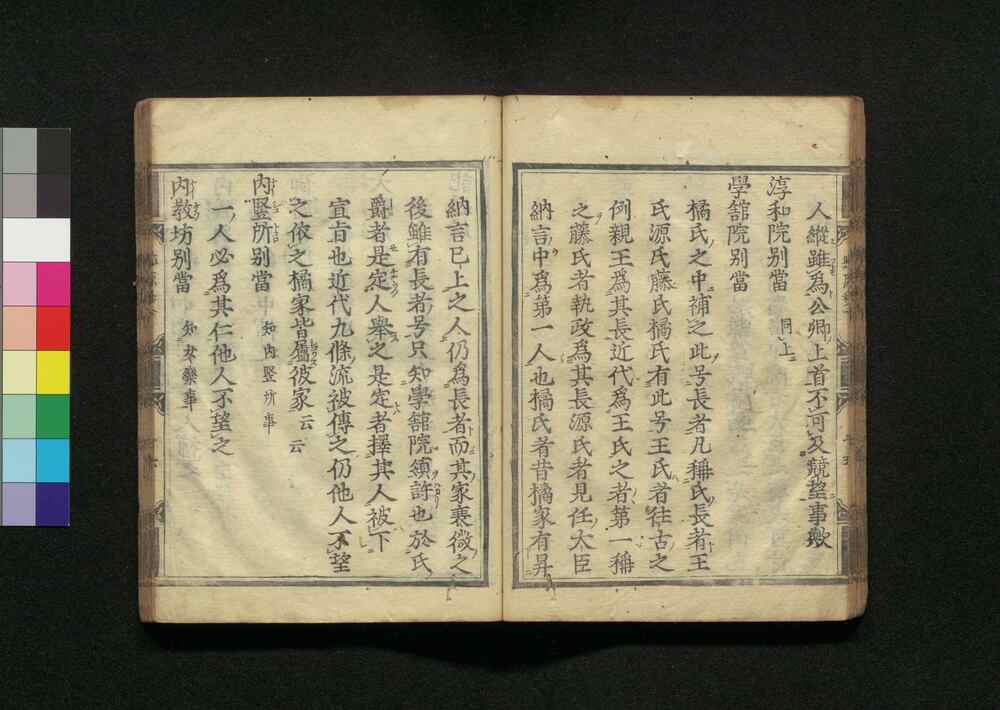 人縱雖爲公卿上首不可及競望事歟
淳和院別當 同上
學舘院別當
橘氏之中補之此号長者凡稱氏長者王
氏源氏藤氏橘氏有此号王氏者往古之
例親王爲其長近代爲王氏之者第一稱
之藤氏者執政爲其長源氏者見任大臣
納言中爲第一人也橘氏者昔橘家有昇
納言已上之人仍爲長者而其家衰微之
後雖有長者号只知學舘院領許也於氏
爵者是定人舉之是定者擇其人被下
宣旨也近代九條流被傳之仍他人不望
之依之橘家皆屬彼家云云
內竪所別當 知內竪所事
一人必爲其仁他人不望之
內教坊別當 知女樂事